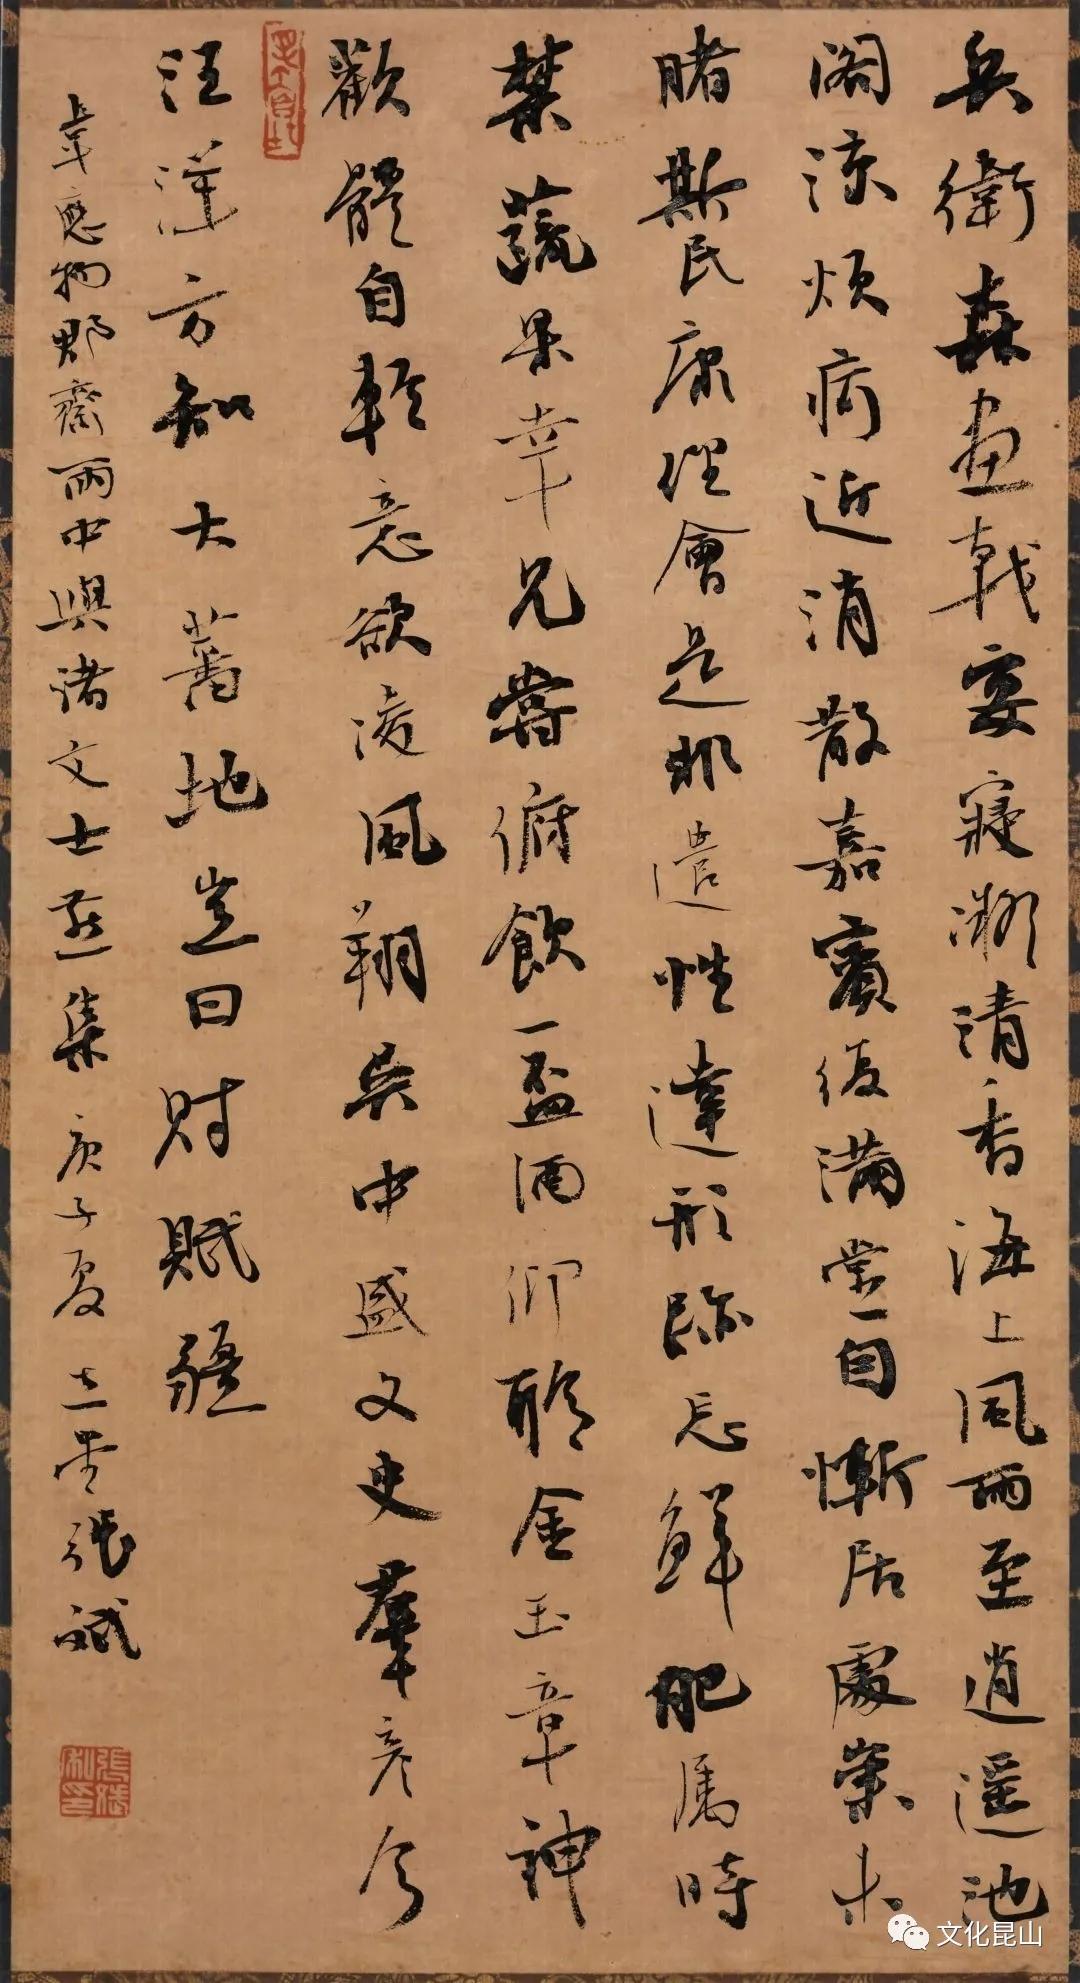 兵衛森画戟宴寢凝清香海上風雨至逍遥池
阁涼煩疴近消散嘉賓復滿堂自慚居處崇未
睹斯民康理會是非遣性達形跡忘鮮肥屬時
禁蔬果幸見嘗俯飲一盃酒仰聆金玉章神
歡體自輕意欲凌風翔吳中盛文史羣彦今
汪洋方知大蕃地豈曰財賦疆
韋應物郡齋雨中與諸文士燕集 庚子夏 張斌
張斌私印
文化昆山